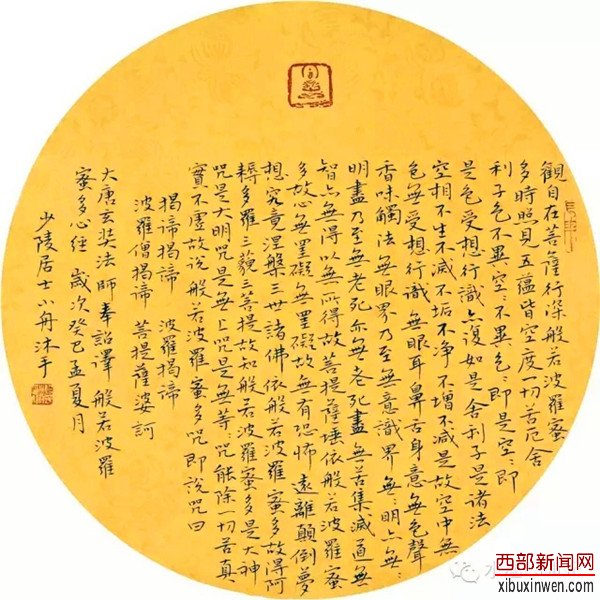 觀自在菩薩行深般若波羅蜜
多時照見五蘊皆空度一切苦厄舍
利子色不異空〻不異色〻即是空〻即
是色受想行識亦復如是舍利子是諸法
空相不生不滅不垢不净不增不減是故空中無
色無受想行識無眼耳鼻舌身意無色聲
香味觸法無眼界乃至無意識界無〻明亦無〻
明盡乃至無老死亦無老死盡無苦集滅道無
智亦無得以無所得故菩提薩埵依般若波羅蜜
多故心無罣礙無罣礙故無有恐怖遠離顛倒夢
想究竟涅槃三世諸佛依般若波羅蜜多故得阿
耨多羅三藐三菩提故知般若波羅蜜多是大神
咒是大明咒是無上咒是無等〻咒能除一切苦真
實不虛故說般若波羅蜜多咒即說咒曰
揭諦揭諦 波羅揭諦
波羅僧揭諦 菩提薩婆訶
大唐玄奘法師奉詔譯般若波羅
蜜多心經 歲次癸巳孟夏月
少陵居士小舟沐手
西部新闻网
xibuxinwen.com